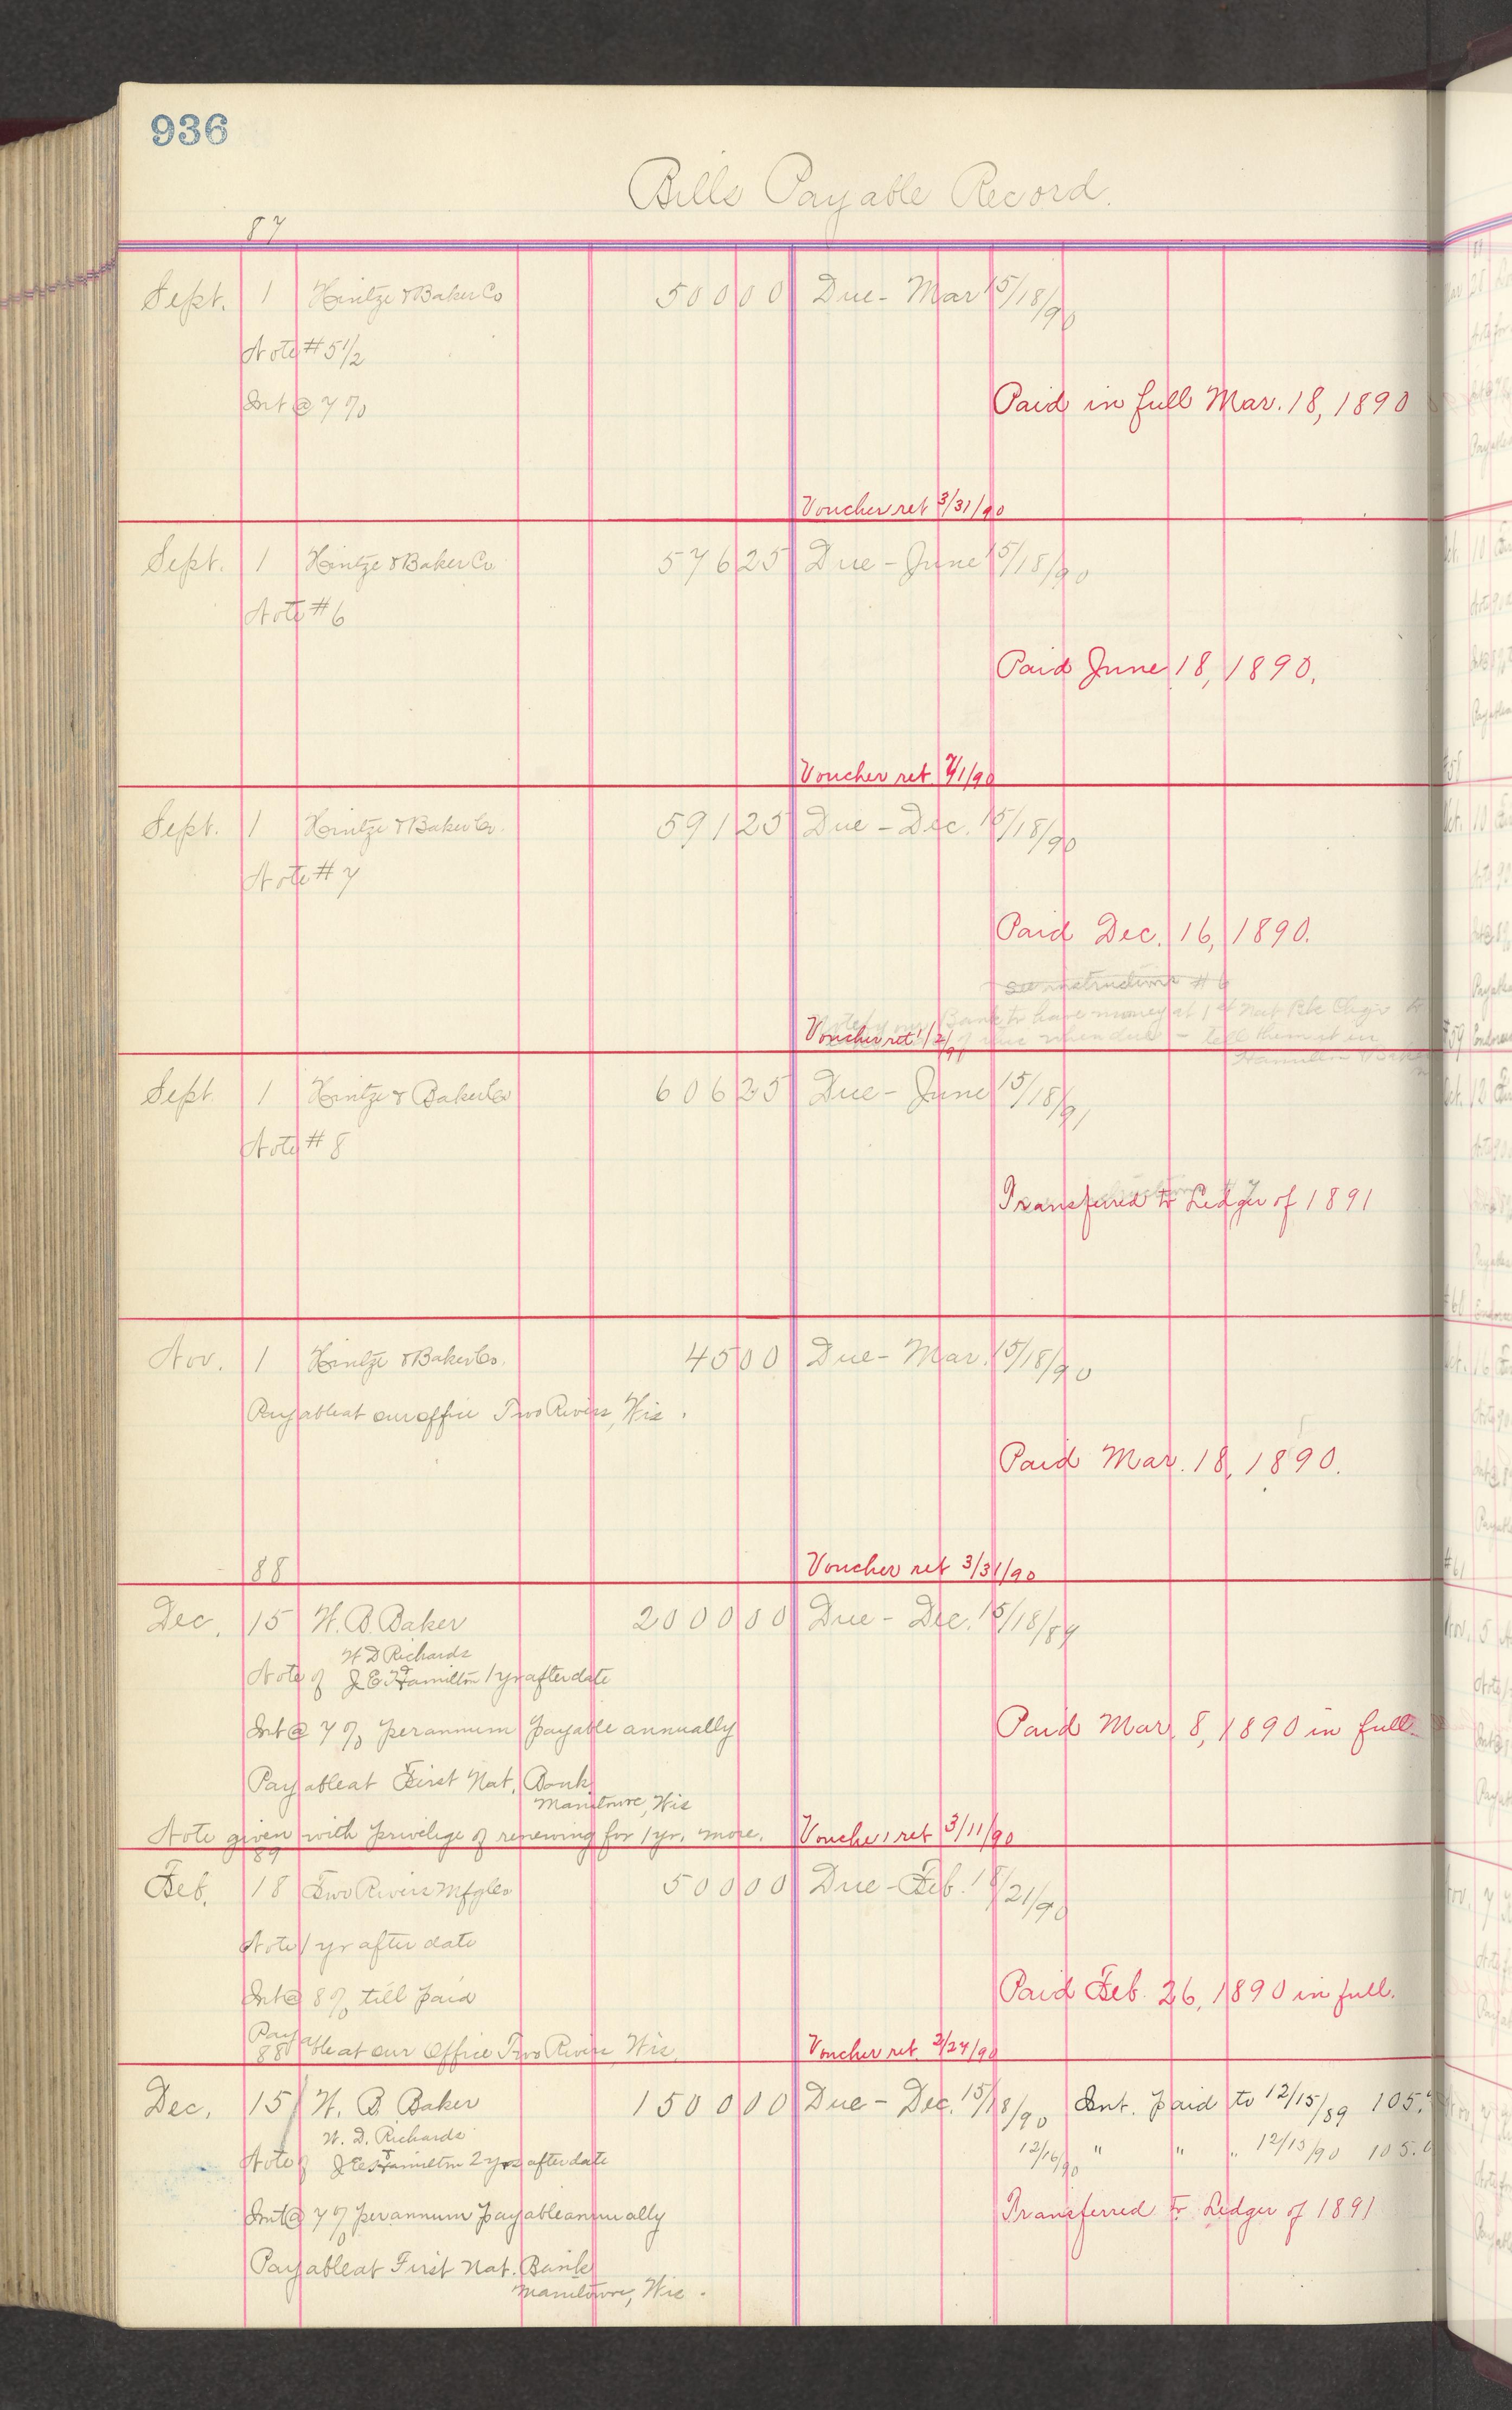 936
Bills Payable Record.
87
Sept. 1 Hintze & Baker Co 500 00 Due - Mar 15/18/90
Note #5 1/2
Int @ 7%
Paid in full Mar. 18, 1890
Voucher ret 3/31/90
Sept. 1 Hintze & Baker Co 576 25 Due - June 15/18/90
Note #6
Paid June 18, 1890.
Voucher ret. 7/1/90
Sept. 1 Hintze & Baker Co. 591 25 Due - Dec. 15/18/90
Note #7
Paid Dec. 16, 1890.
See instructions #6
Bank to have money at 1st Nat Bk Chgo
Voucher ret 1/2/91 when due - tell them
Sept. 1 Hintze & Baker Co 606 25 Due - June 15/18/91
Note #8
Transferred to Ledger of 1891
Nov. 1 Hintze & Baker Co. 45 00 Due - Mar. 15/18/90
Payable at our office Two Rivers, Wis.
Paid Mar. 18, 1890.
88 Voucher ret 3/31/90
Dec. 15 H. B. Baker 2000 00 Due - Dec. 15/18/89
W D Richards
Note of J. E. Hamilton 1 yr after date
Int @ 7% per annum payable annually
Paid Mar 8, 1890 in full
Payable at First Nat. Bank
Manitowc, Wis
Note given with privelige of renewing for 1 yr. more. Voucher ret 3/11/90
89
Feb. 18 Two Rivers Mfg Co 500 00 Due - Feb. 18/21/90
Note 1 yr after date
Int @ 8% till paid
Paid Feb. 26, 1890 in full.
Payable at our Office Two Rivers Wis. Voucher ret. 2/27/90
88
Dec. 15 H. B. Baker 1500 00 Due - Dec. 15/18/90 Int. paid to 12/15/89 105.
W. D. Richards
12/16/90 " " " 12/15/90 105.0
Note of J E Hamilton 2 yrs after date
Int @ 7% per annum payable annually
Transferred to Ledger of 1891
Payable at First Nat. Bank
Manitowc, Wis.